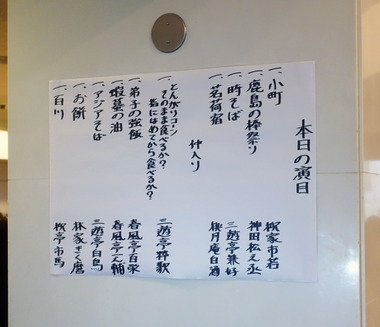 本日の演目
一、小町 柳家市若
一、鹿島の棒祭り 神田松之丞
一、時そば 三遊亭兼好
一、茗荷宿 桃月庵白酒
仲入り
一、とんがりコーン
そのまま食べるか?
指にはめてから食べるか? 三遊亭粋歌
一、弟子の強飯 春風亭百栄
一、蝦蟇の油 春風亭一之輔
一、アジアそば 三遊亭白鳥
一、お餅 林家きく麿
一、百川 柳亭市馬